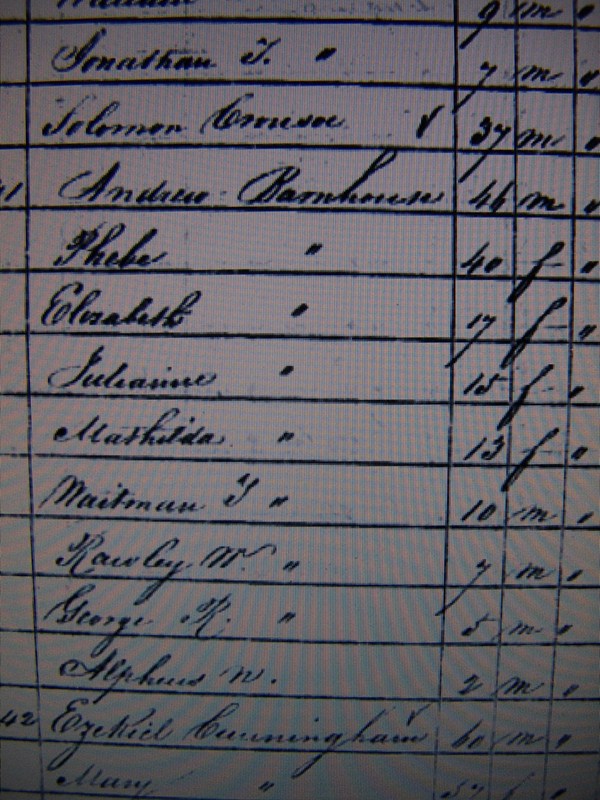 9 m "
Jonathan T. " 7 m "
Solomon 37 m "
41 Andrew Barnhouse 46 m "
Phebe " 40 f "
Elizabeth " 17 f "
Julianne " 15 f "
Mathilda " 13 f "
Waitman T " 10 m "
Rawley W. " 7 m "
George R. " 5 m "
Alpheus W. 2 m "
42 Ezekiel Cunningham 60 m "
Mary " f "